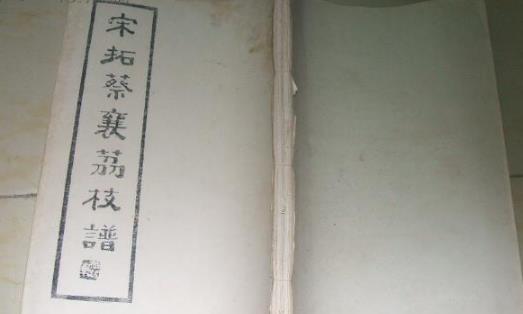 宋拓蔡襄荔枝譜